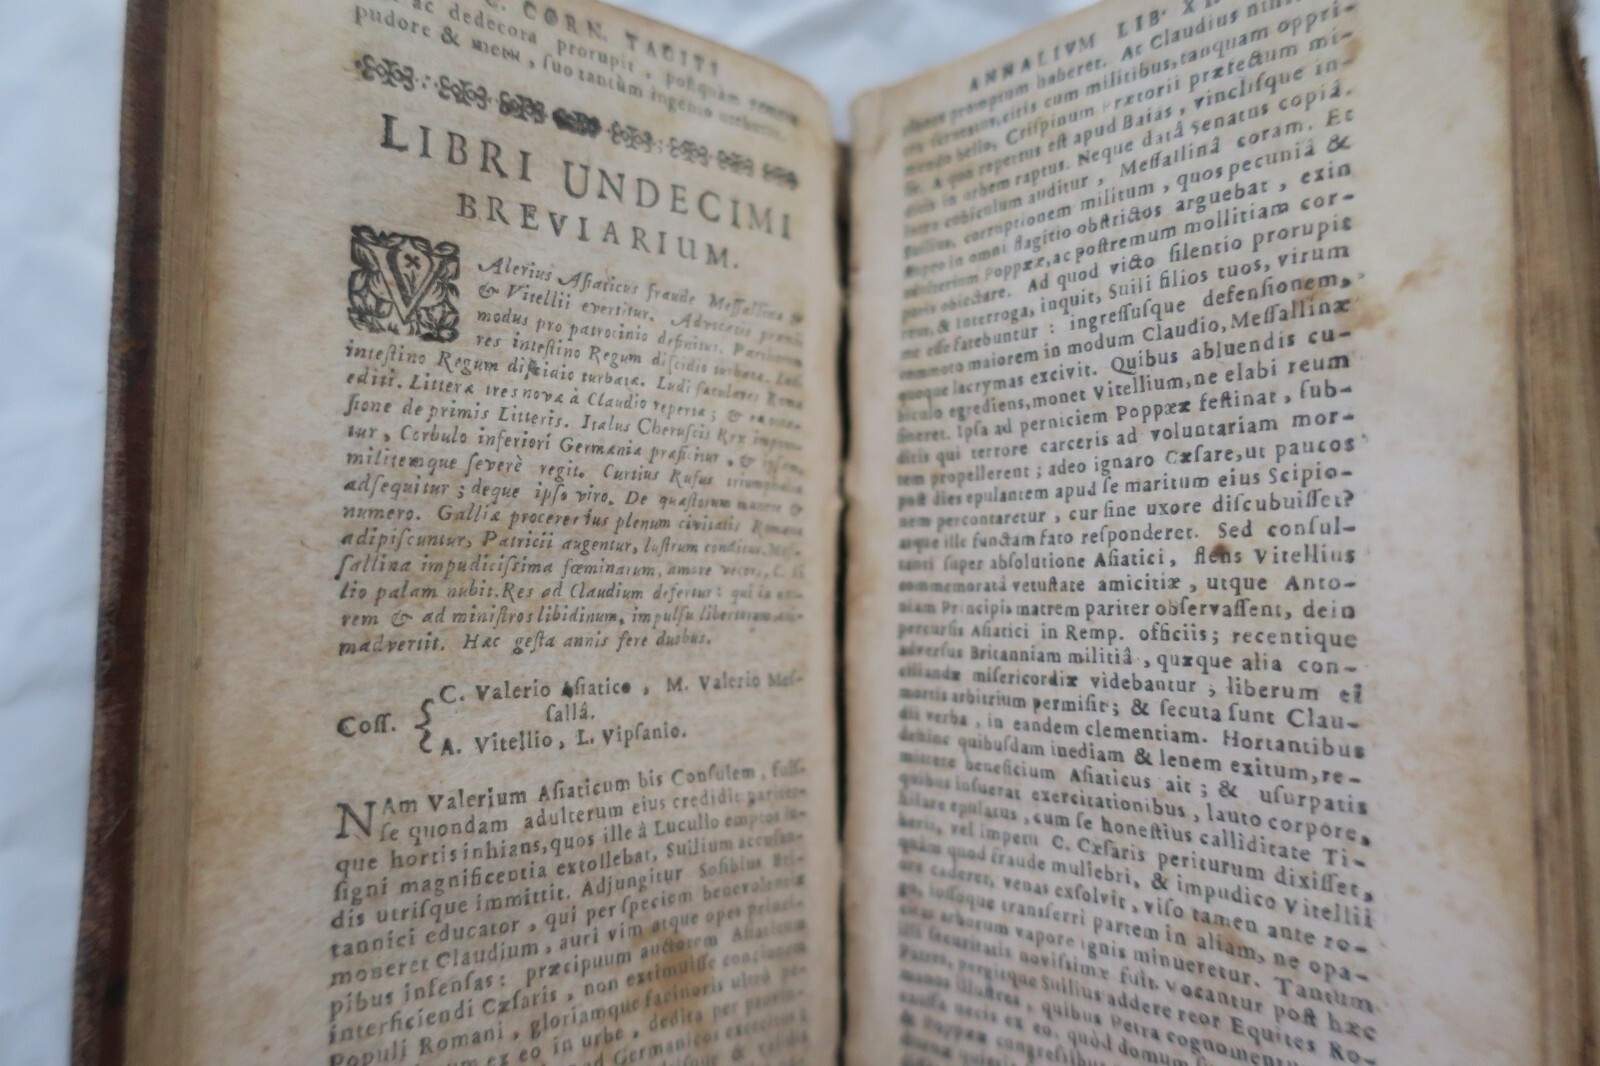 C. CORN. TACITI
ac dedecora prorupit, postquam remoto
pudore & metu, suo tantùm ingenio utebatur.
LIBRI UNDECIMI
BREVIARIUM.
VAlerius Asiaticus fraude Messallinæ &
& Vitellii evertitur. Advocatis præmii
modus pro patrocinio definitur. Parthorum
res intestino Regum discidio turbatæ.
intestino Regum discidio turbatæ. Ludi sæculares Romæ
editi. Litteræ tres novæ à Claudio repertæ; &
sione de primis Litteris. Italus Cheruscis Rex imponi-
tur, Corbulo inferiori Germaniæ præficitur, &
militemque severè regit. Curtius Rufus triumphalia
adsequitur; deque ipso viro. De quæstorum munere &
numero. Galliæ procerer ius plenum civitatis Romanæ
adipiscuntur, Patricii augentur, lustrum conditur. Mes-
sallina impudicissima fœminarum, amore vecors, C. Si-
lio palam nubit. Res ad Claudium defertur: qui in
rem & ad ministros libidinum, impulsu libertorum ani-
madvertit. Hæc gesta annis fere duobus.
Coss. { C. Valerio Asiatico, M. Valerio Mes-
sallâ.
A. Vitellio, L. Vipsanio.
NAm Valerium Asiaticum bis Consulem, fuis-
se quondam adulterum eius credidit pariter-
que hortis inhians, quos ille à Lucullo emptos in-
signi magnificentia extollebat, Suilium accusan-
dis utrisque immittit. Adjungitur Sosibius Bri-
tannici educator, qui per speciem benevolentiæ
moneret Claudium, auri vim atque opes princi-
pibus infensas: præcipuum auctorem Asiaticum
interficiendi Cæsaris, non extimuisse concionem
Populi Romani, gloriamque facinoris ultrò pe-
ex eo in urbe, dedita per provin-
Germanicos exercitus
& valida
ANNALIVM LIB. XI.
promptum haberet. At Claudius nihil
citis cum militibus, tanquam oppri-
mendo bello, Crispinum Prætorii præfectum mi-
sit. A quo repertus est apud Baias, vinclisque in-
ditis in urbem raptus. Neque datâ Senatus copiâ.
intra cubiculum auditur, Messallinâ coram. Et
Suilius, corruptionem militum, quos pecuniâ &
stupro in omni flagitio obstrictos arguebat, exin
adulterium Poppææ, ac postremum mollitiam cor-
poris obiectare. Ad quod victo silentio prorupit
reus, & interroga, inquit, Suili filios tuos, virum
me esse fatebuntur: ingressusque defensionem,
commoto maiorem in modum Claudio, Messallinæ
quoque lacrymas excivit. Quibus abluendis cu-
biculo egrediens, monet Vitellium, ne elabi reum
sineret. Ipsa ad perniciem Poppææ festinat, sub-
ditis qui terrore carceris ad voluntariam mor-
tem propellerent; adeo ignaro Cæsare, ut paucos
post dies epulantem apud se maritum eius Scipio-
nem percontaretur, cur sine uxore discubuisset?
atque ille functam fato responderet. Sed consul-
tanti super absolutione Asiatici, flens Vitellius
commemoratâ vetustate amicitiæ, utque Anto-
niam Principis matrem pariter observassent, dein
percursis Asiatici in Remp. officiis; recentique
adversus Britanniam militiâ, quæque alia con-
ciliandæ misericordiæ videbantur; liberum ei
mortis arbitrium permisit; & secuta sunt Clau-
dii verba, in eandem clementiam. Hortantibus
dehinc quibusdam inediam & lenem exitum, re-
mittere beneficium Asiaticus ait; & usurpatis
quibus insuerat exercitationibus, lauto corpore,
hilare epulatus, cum se honestius calliditate Ti-
berii, vel impetu C. Cæsaris periturum dixisset,
quàm quod fraude muliebri, & impudico Vitellii
ore caderet, venas exsolvit, viso tamen ante ro-
go, iussoque transferri partem in aliam, ne opa-
citas arborum vapore ignis minueretur. Tantum
illi securitatis novissimæ fuit. Vocantur post hæc
Patres, pergitque Suilius addere reos Equites Ro-
manos illustres, quibus Petra cognomentum
caussa necis ex eo, quòd domum
& Poppææ congressibus